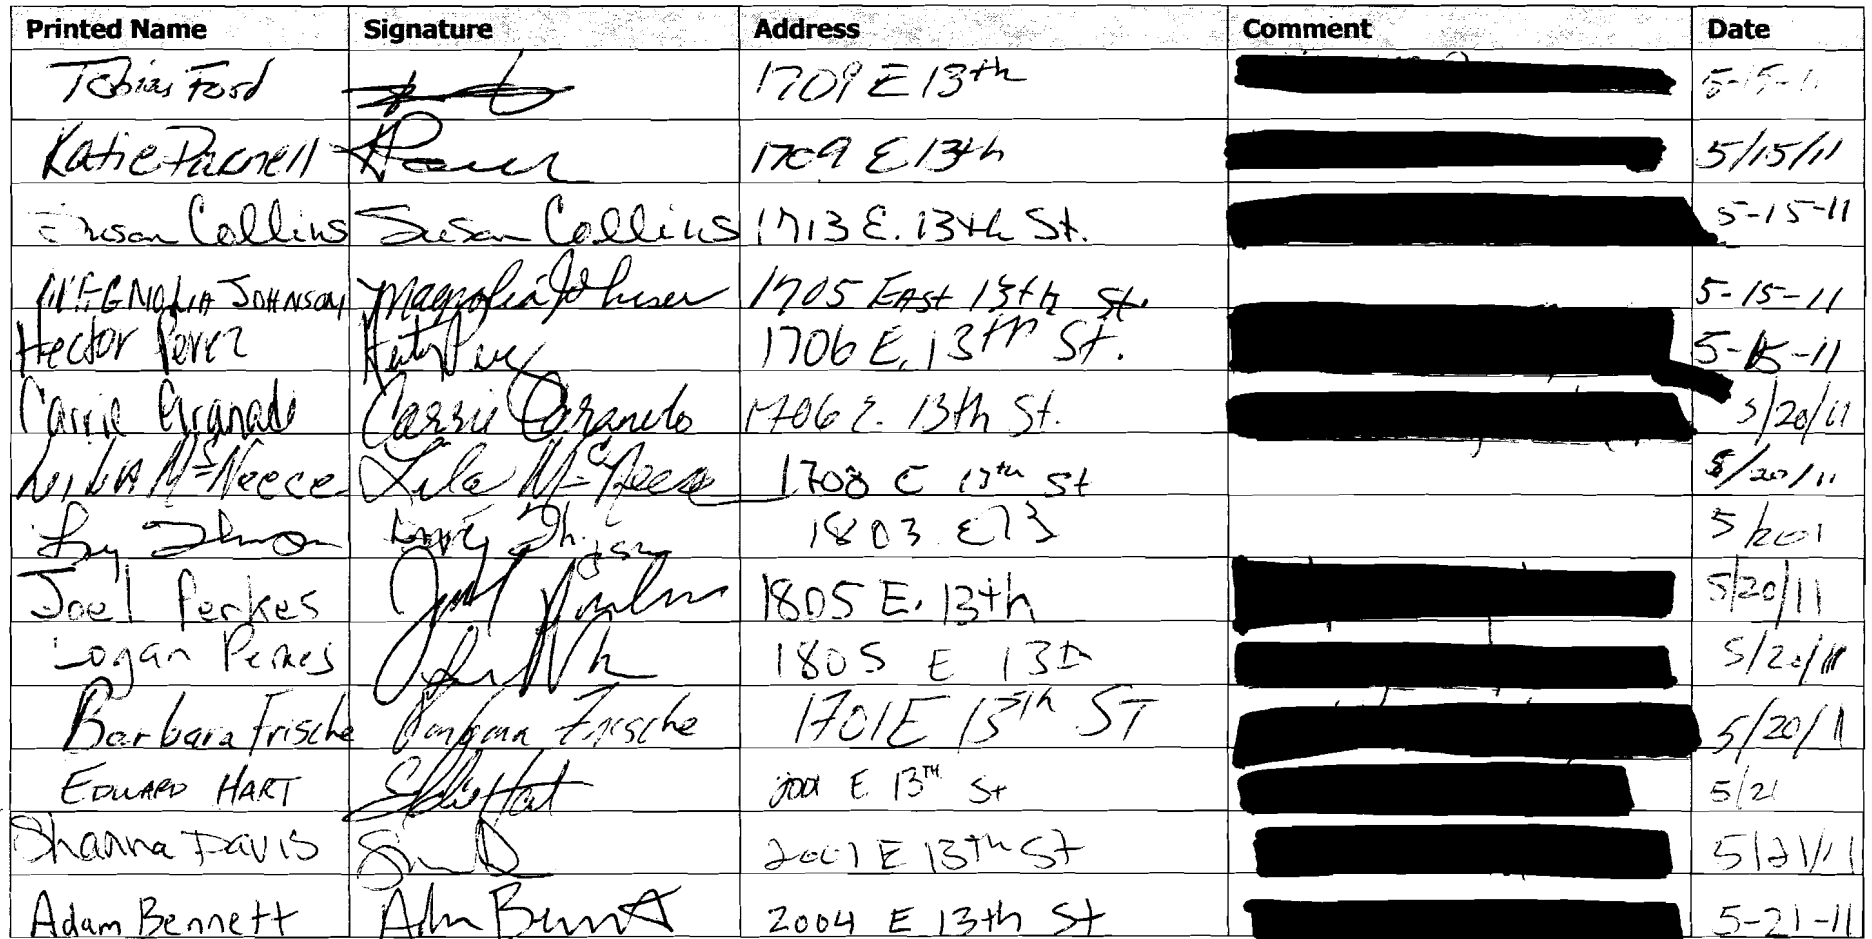 Printed Name Signature Address Comment Date
Tobias Ford 1709 E 13th 5-15-11
Katie Parnell 1709 E 13th 5/15/11
Susan Collins Susan Collins 1713 E. 13th St. 5-15-11
MAGNOLIA JOHNSON Magnolia Johnson 1705 EAST 13th St. 5-15-11
Hector Perez 1706 E. 13th St. 5-15-11
Carrie Granado Carrie Granado 1706 E. 13th St. 5/20/11
McNeece Lila McNeece 1708 E 13th St 5/20/11
1803 E 13
Joel Perkes 1805 E. 13th 5/20/11
Logan Perkes 1805 E 13th 5/20/11
Barbara Frische Barbara Frische 1701 E 13th ST 5/20/11
EDWARD HART Eddie Hart E 13TH St 5/21
Shanna Davis 2001 E 13th St 5/21/11
Adam Bennett Adam Bennett 2004 E 13th St 5-21-11